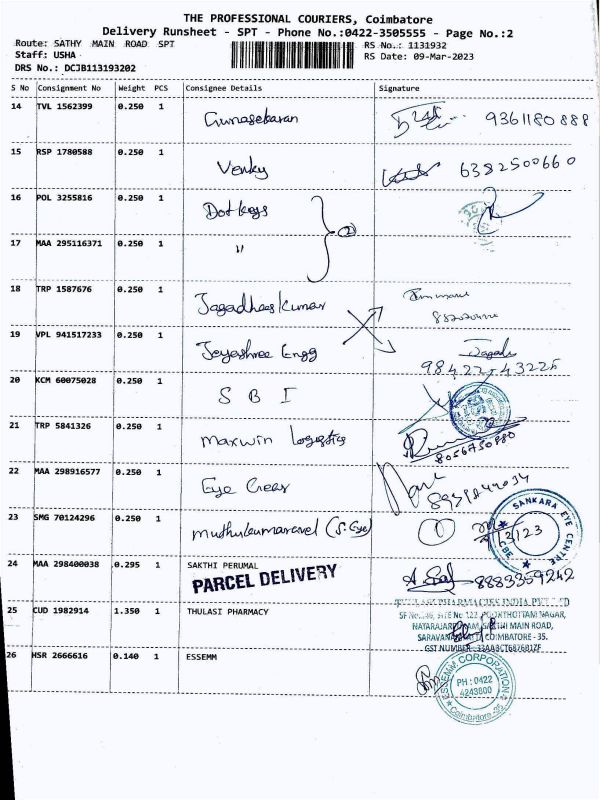 THE PROFESSIONAL COURIERS, Coimbatore
Delivery Runsheet - SPT - Phone No.:0422-3505555 - Page No.:2
Route: SATHY MAIN ROAD SPT
RS No.: 1131932
Staff: USHA
RS Date: 09-Mar-2023
DRS No.: DCJB113193202
S No Consignment No Weight PCS Consignee Details Signature
14 TVL 1562399 0.250 1 Gunasekaran 9361180888
15 RSP 1780588 0.250 1 Venky 6382500660
16 POL 3255816 0.250 1 Dot keys
②
17 MAA 295116371 0.250 1 "
18 TRP 1587676 0.250 1 Jagadheeskumar
19 VPL 941517233 0.250 1 Jeyashree Engg Jagade
98422-43225
20 KCM 60075028 0.250 1 S B I
21 TRP 5841326 0.250 1 Maxwin Logistics
8056750880
22 MAA 298916577 0.250 1 Eye Creas
23 SMG 70124296 0.250 1 Muthukumaravel (S.Eye)
SANKARA EYE CENTRE
24 MAA 298400038 0.295 1 SAKTHI PERUMAL 8883359242
PARCEL DELIVERY
25 CUD 1982914 1.350 1 THULASI PHARMACY
THULASI PHARMACIES INDIA PVT LTD
SF No. POOKTHOTTAM NAGAR,
SAKTHI MAIN ROAD,
COIMBATORE - 35.
GST NUMBER
26 HSR 2666616 0.140 1 ESSEMM
ESSEMM CORPORATION
PH : 0422
4243800
Coimbatore-35